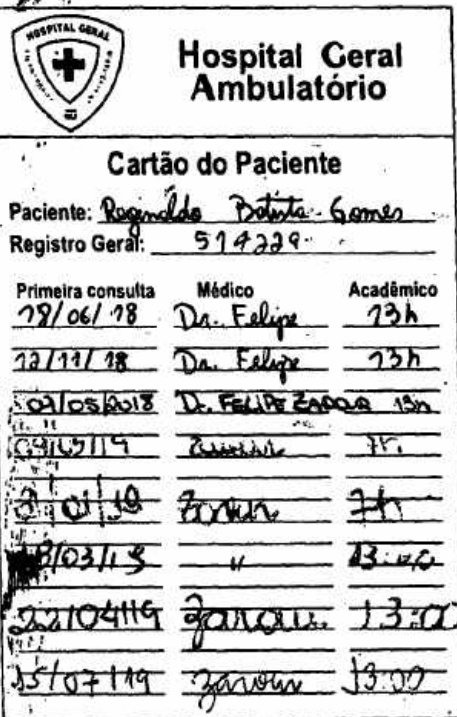 HOSPITAL GERAL
Hospital Geral
Ambulatório
Cartão do Paciente
Paciente: Reginaldo Batista Gomes
Registro Geral: 514229
Primeira consulta Médico Acadêmico
18/06/18 Dr. Felipe 13h
12/11/18 Dr. Felipe 13h
07/05/2018 Dr. FELIPE 13h
7h
/01/19 7h
/03/19 " 13:00
22/04/19 13:00
15/07/19 13:00